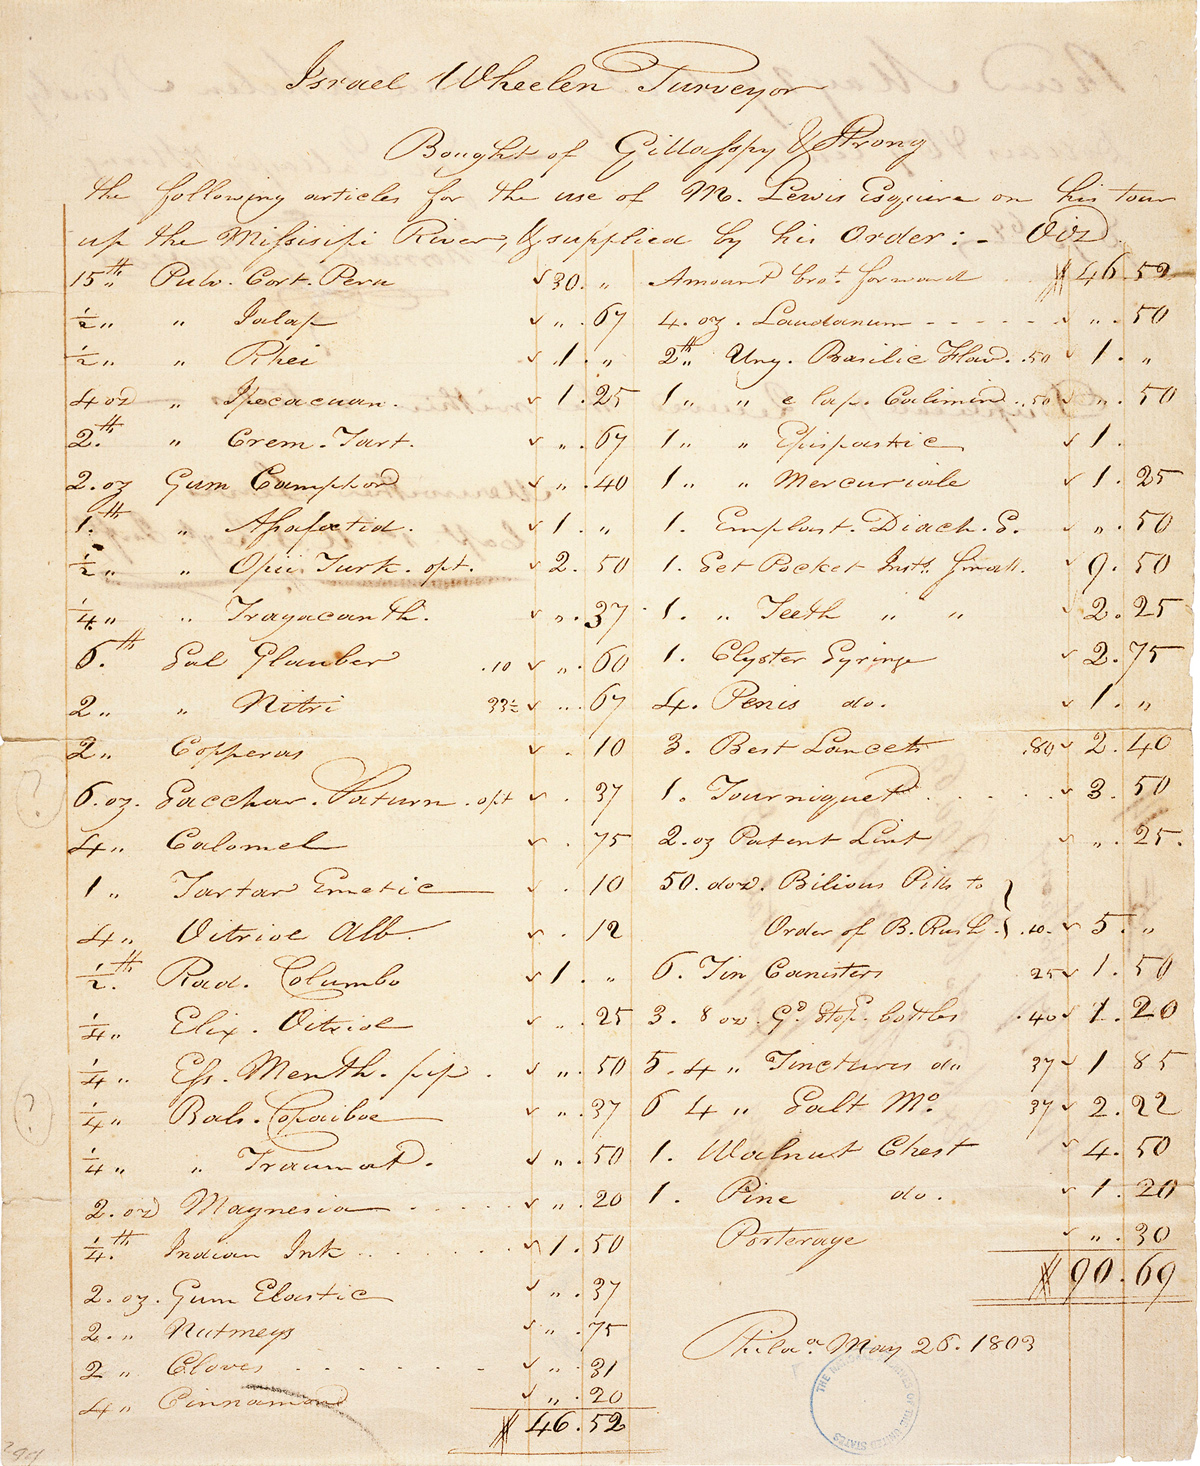 Israel Wheelen Purveyor
Bought of Gillaspy & Strong
the following articles for the use of M. Lewis Esquire on his tour
up the Missisipi River, & supplied by his Order: – Viz
15 lb „ Pulv. Cort. Peru ✓ 30. „
½ „ „ Jalap ✓ „. 67
½ „ „ Rhei ✓ 1. „
4 oz „ Ipecacuan. ✓ 1. 25
2. lb „ Crem. Tart. ✓ „. 67
2. oz Gum Camphor ✓ „. 40
1. lb „ Assafoetid. ✓ 1. „
½ „ „ Opii Turk. opt. ✓ 2. 50
¼ „ „ Tragacanth. ✓ „. 37
6. lb Sal Glauber .10 ✓ „. 60
2 „ „ Nitri 33½ ✓ „. 67
2 „ Copperas ✓ . 10
6. oz. Sacchar. Saturn. opt ✓ . 37
4 „ Calomel ✓ . 75
1 „ Tartar Emetic ✓ . 10
4 „ Vitriol Alb. ✓ . 12
½. lb Rad. Columbo ✓ 1. „
¼ „ Elix. Vitriol ✓ „. 25
¼ „ Ess. Menth. pip. ✓ „. 50
¼ „ Bals. Copaiboe ✓ „. 37
¼ „ „ Traumat. ✓ „. 50
2. oz Magnesia ✓ „. 20
¼. lb Indian Ink ✓ 1. 50
2. oz. Gum Elastic ✓ „. 37
2. „ Nutmegs ✓ „. 75
2 „ Cloves ✓ „. 31
4 „ Cinnamon ✓ „. 20
$ 46. 52
Amount brot. forward $ 46. 52
4. oz. Laudanum ✓ „. 50
2 lb „ Ung. Basilic Flav. .50 ✓ 1. „
1 „ „ e lap. Calimin. .50 ✓ „. 50
1 „ „ Epispastic ✓ 1.
1 „ „ Mercuriale ✓ 1. 25
1. Emplast. Diach. S. ✓ „. 50
1. Set Pocket Insts. small. ✓ 9. 50
1. „ Teeth „ „ ✓ 2. 25
1. Clyster Syringe ✓ 2. 75
4. Penis do. ✓ 1. „
3. Best Lancets .80 ✓ 2. 40
1. Tourniquet ✓ 3. 50
2. oz Patent Lint ✓ „. 25.
50. doz. Bilious Pills to
Order of B. Rush. .10. ✓ 5. „
6. Tin Canisters 25 ✓ 1. 50
3. 8 oz. Gd. Stopd. bottles .40 ✓ 1. 20
5. 4 „ Tinctures do 37 ✓ 1 85
6 4 „ Salt Mo. 37 ✓ 2. 22
1. Walnut Chest ✓ 4. 50
1. Pine do. ✓ 1. 20
Porterage ✓ „. 30
$ 90. 69
Phila. May 26. 1803
?
?
299